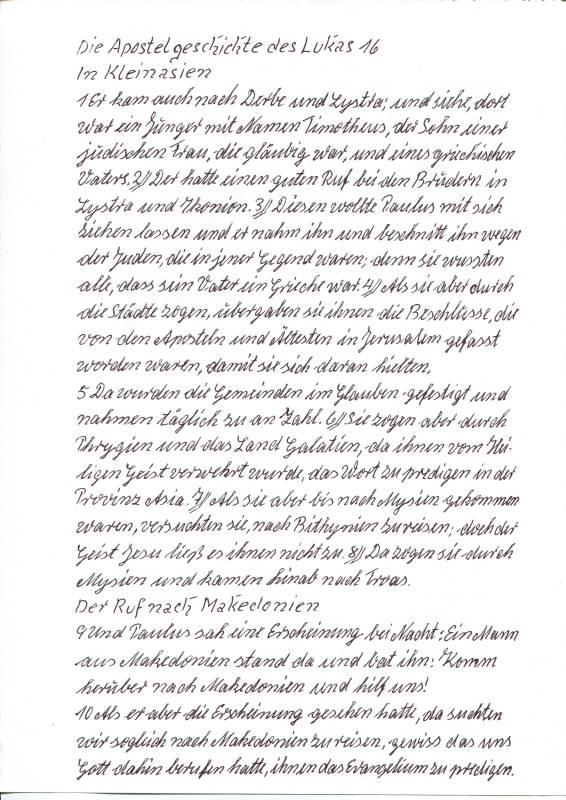 Die Apostelgeschichte des Lukas 16
In Kleinasien
1 Er kam auch nach Derbe und Lystra; und siehe, dort
war ein Jünger mit Namen Timotheus, der Sohn einer
jüdischen Frau, die gläubig war, und eines griechischen
Vaters. 2// Der hatte einen guten Ruf bei den Brüdern in
Lystra und Ikonion. 3// Diesen wollte Paulus mit sich
ziehen lassen und er nahm ihn und beschnitt ihn wegen
der Juden, die in jener Gegend waren; denn sie wussten
alle, dass sein Vater ein Grieche war. 4// Als sie aber durch
die Städte zogen, übergaben sie ihnen die Beschlüsse, die
von den Aposteln und Ältesten in Jerusalem gefasst
worden waren, damit sie sich daran hielten.
5 Da wurden die Gemeinden im Glauben gefestigt und
nahmen täglich zu an Zahl. 6// Sie zogen aber durch
Phrygien und das Land Galatien, da ihnen vom Hei-
ligen Geist verwehrt wurde, das Wort zu predigen in der
Provinz Asia. 7// Als sie aber bis nach Mysien gekommen
waren, versuchten sie, nach Bithynien zu reisen; doch der
Geist Jesu ließ es ihnen nicht zu. 8// Da zogen sie durch
Mysien und kamen hinab nach Troas.
Der Ruf nach Makedonien
9 Und Paulus sah eine Erscheinung bei Nacht: Ein Mann
aus Makedonien stand da und bat ihn: Komm
herüber nach Makedonien und hilf uns!
10 Als er aber die Erscheinung gesehen hatte, da suchten
wir sogleich nach Makedonien zu reisen, gewiss das uns
Gott dahin berufen hatte, ihnen das Evangelium zu predigen.